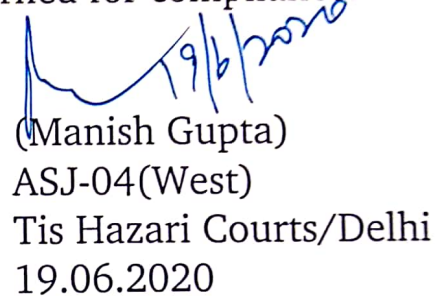 for compliance
19/6/2020
(Manish Gupta)
ASJ-04(West)
Tis Hazari Courts/Delhi
19.06.2020